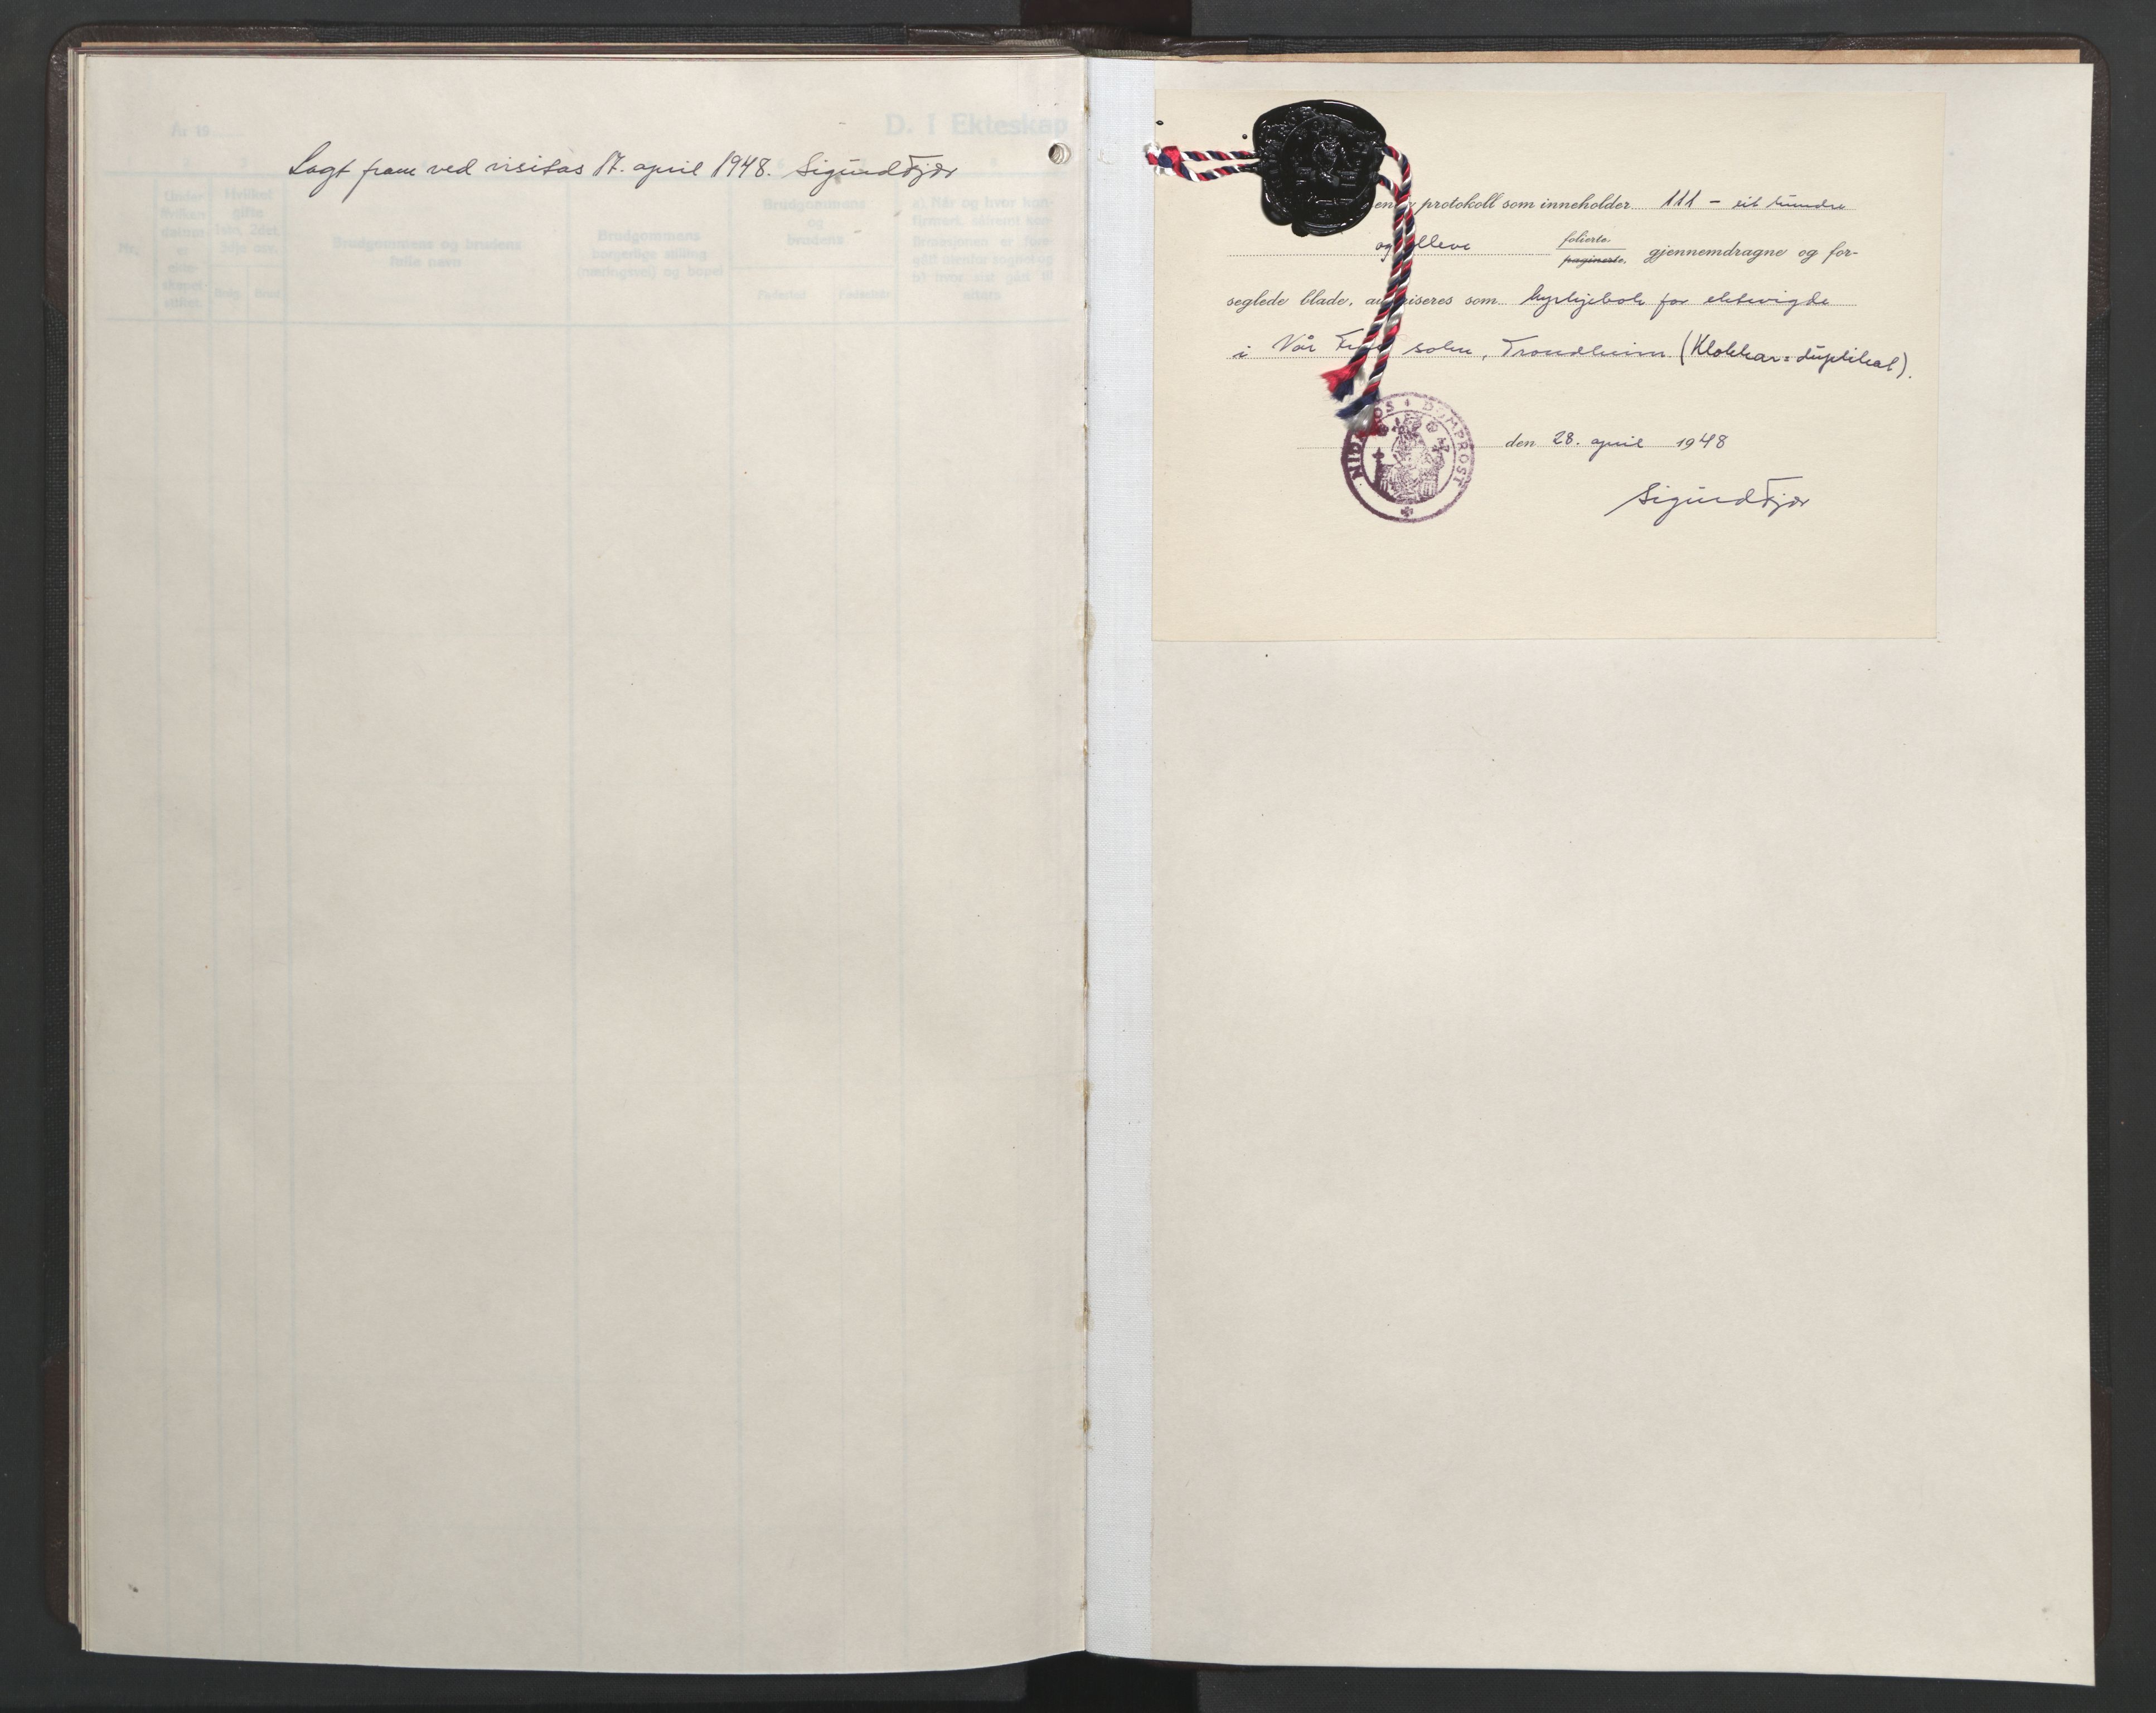 Lagt fram ved visitas 17. april 1948. Sigurd Fjær
År 19
D. I Ekteskap
Nr.
Under hvilken datum er ekteskapet stiftet.
Hvilket gifte 1ste, 2det, 3dje osv.
Brudg. Brud
Brudgommens og brudens fulle navn
Brudgommens borgerlige stilling (næringsvei) og bopel
Brudgommens og brudens
Fødested Fødselsår
a) Når og hvor konfirmert, såfremt konfirmasjonen er foregått utenfor sognet og b) hvor sist gått til alters
protokoll som inneholder 111 - eit hundre
og elleve folierte paginerte, gjennemdragne og for-
seglede blade, autoriseres som kyrkjebok for ektevigde
i Vår Frue sokn, Trondheim (Klokkar=duplikat).
NIDAROS DOMPROST
den 28. april 1948
Sigurd Fjær